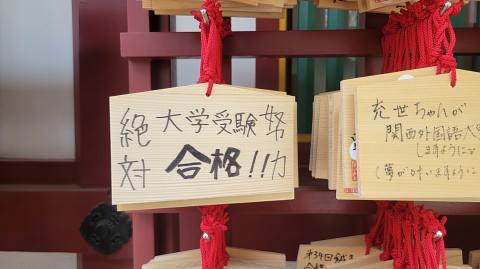 絶対 大学受験 努力
合格!!
充世ちゃんが
関西外国語大
しますように
(夢が叶いますように
合格